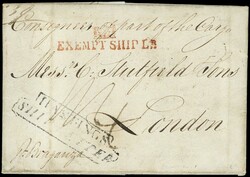 Consignees of part of the Cargo
EXEMPT SHIP LR
Messrs C. Stutfield Sons
London
HASTINGS
SHIP LETTER
pr Braganza